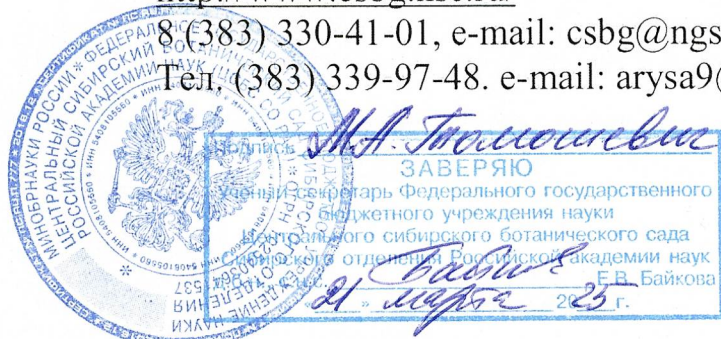 8 (383) 330-41-01, e-mail: csbg@ngs
Тел. (383) 339-97-48. e-mail: arysa9@
Подпись М.А. Томошевич
ЗАВЕРЯЮ
Ученый секретарь Федерального государственного
бюджетного учреждения науки
Центрального сибирского ботанического сада
Сибирского отделения Российской академии наук
Е.В. Байкова
21 » марта 2025 г.
МИНОБРНАУКИ РОССИИ * ФЕДЕРАЛЬНОЕ
ЦЕНТРАЛЬНЫЙ СИБИРСКИЙ БОТАНИЧЕСКИЙ САД
РОССИЙСКОЙ АКАДЕМИИ НАУК